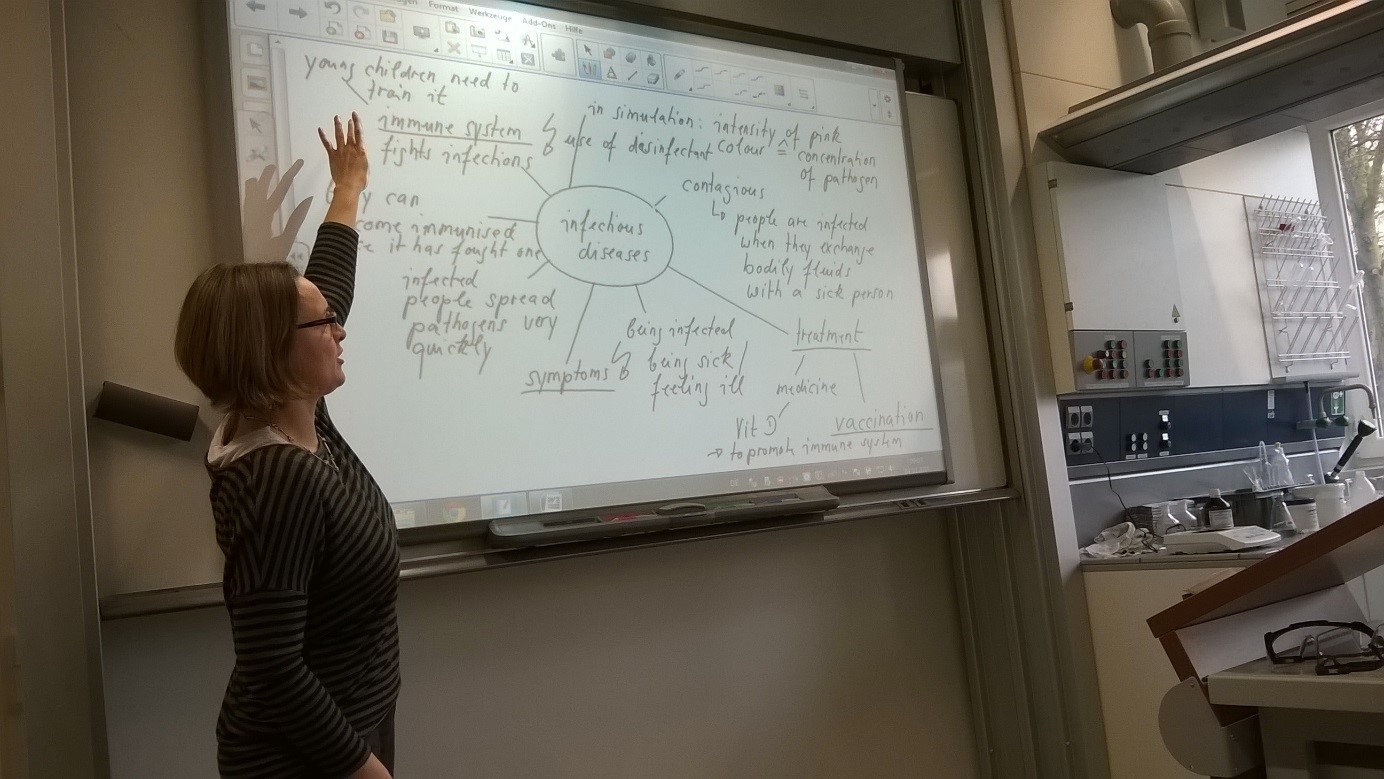 Format Werkzeuge Add-Ons Hilfe
young children need to
train it
immune system
fights infections
in simulation: intensity of pink
colour ≙ concentration
of pathogen
use of desinfectant
contagious
↳ people are infected
when they exchange
bodily fluids
with a sick person
infectious
diseases
can
immunised
it has fought one
infected
people spread
pathogens very
quickly
symptoms
being infected
being sick /
feeling ill
treatment
medicine
Vit D
→ to promote immune system
vaccination